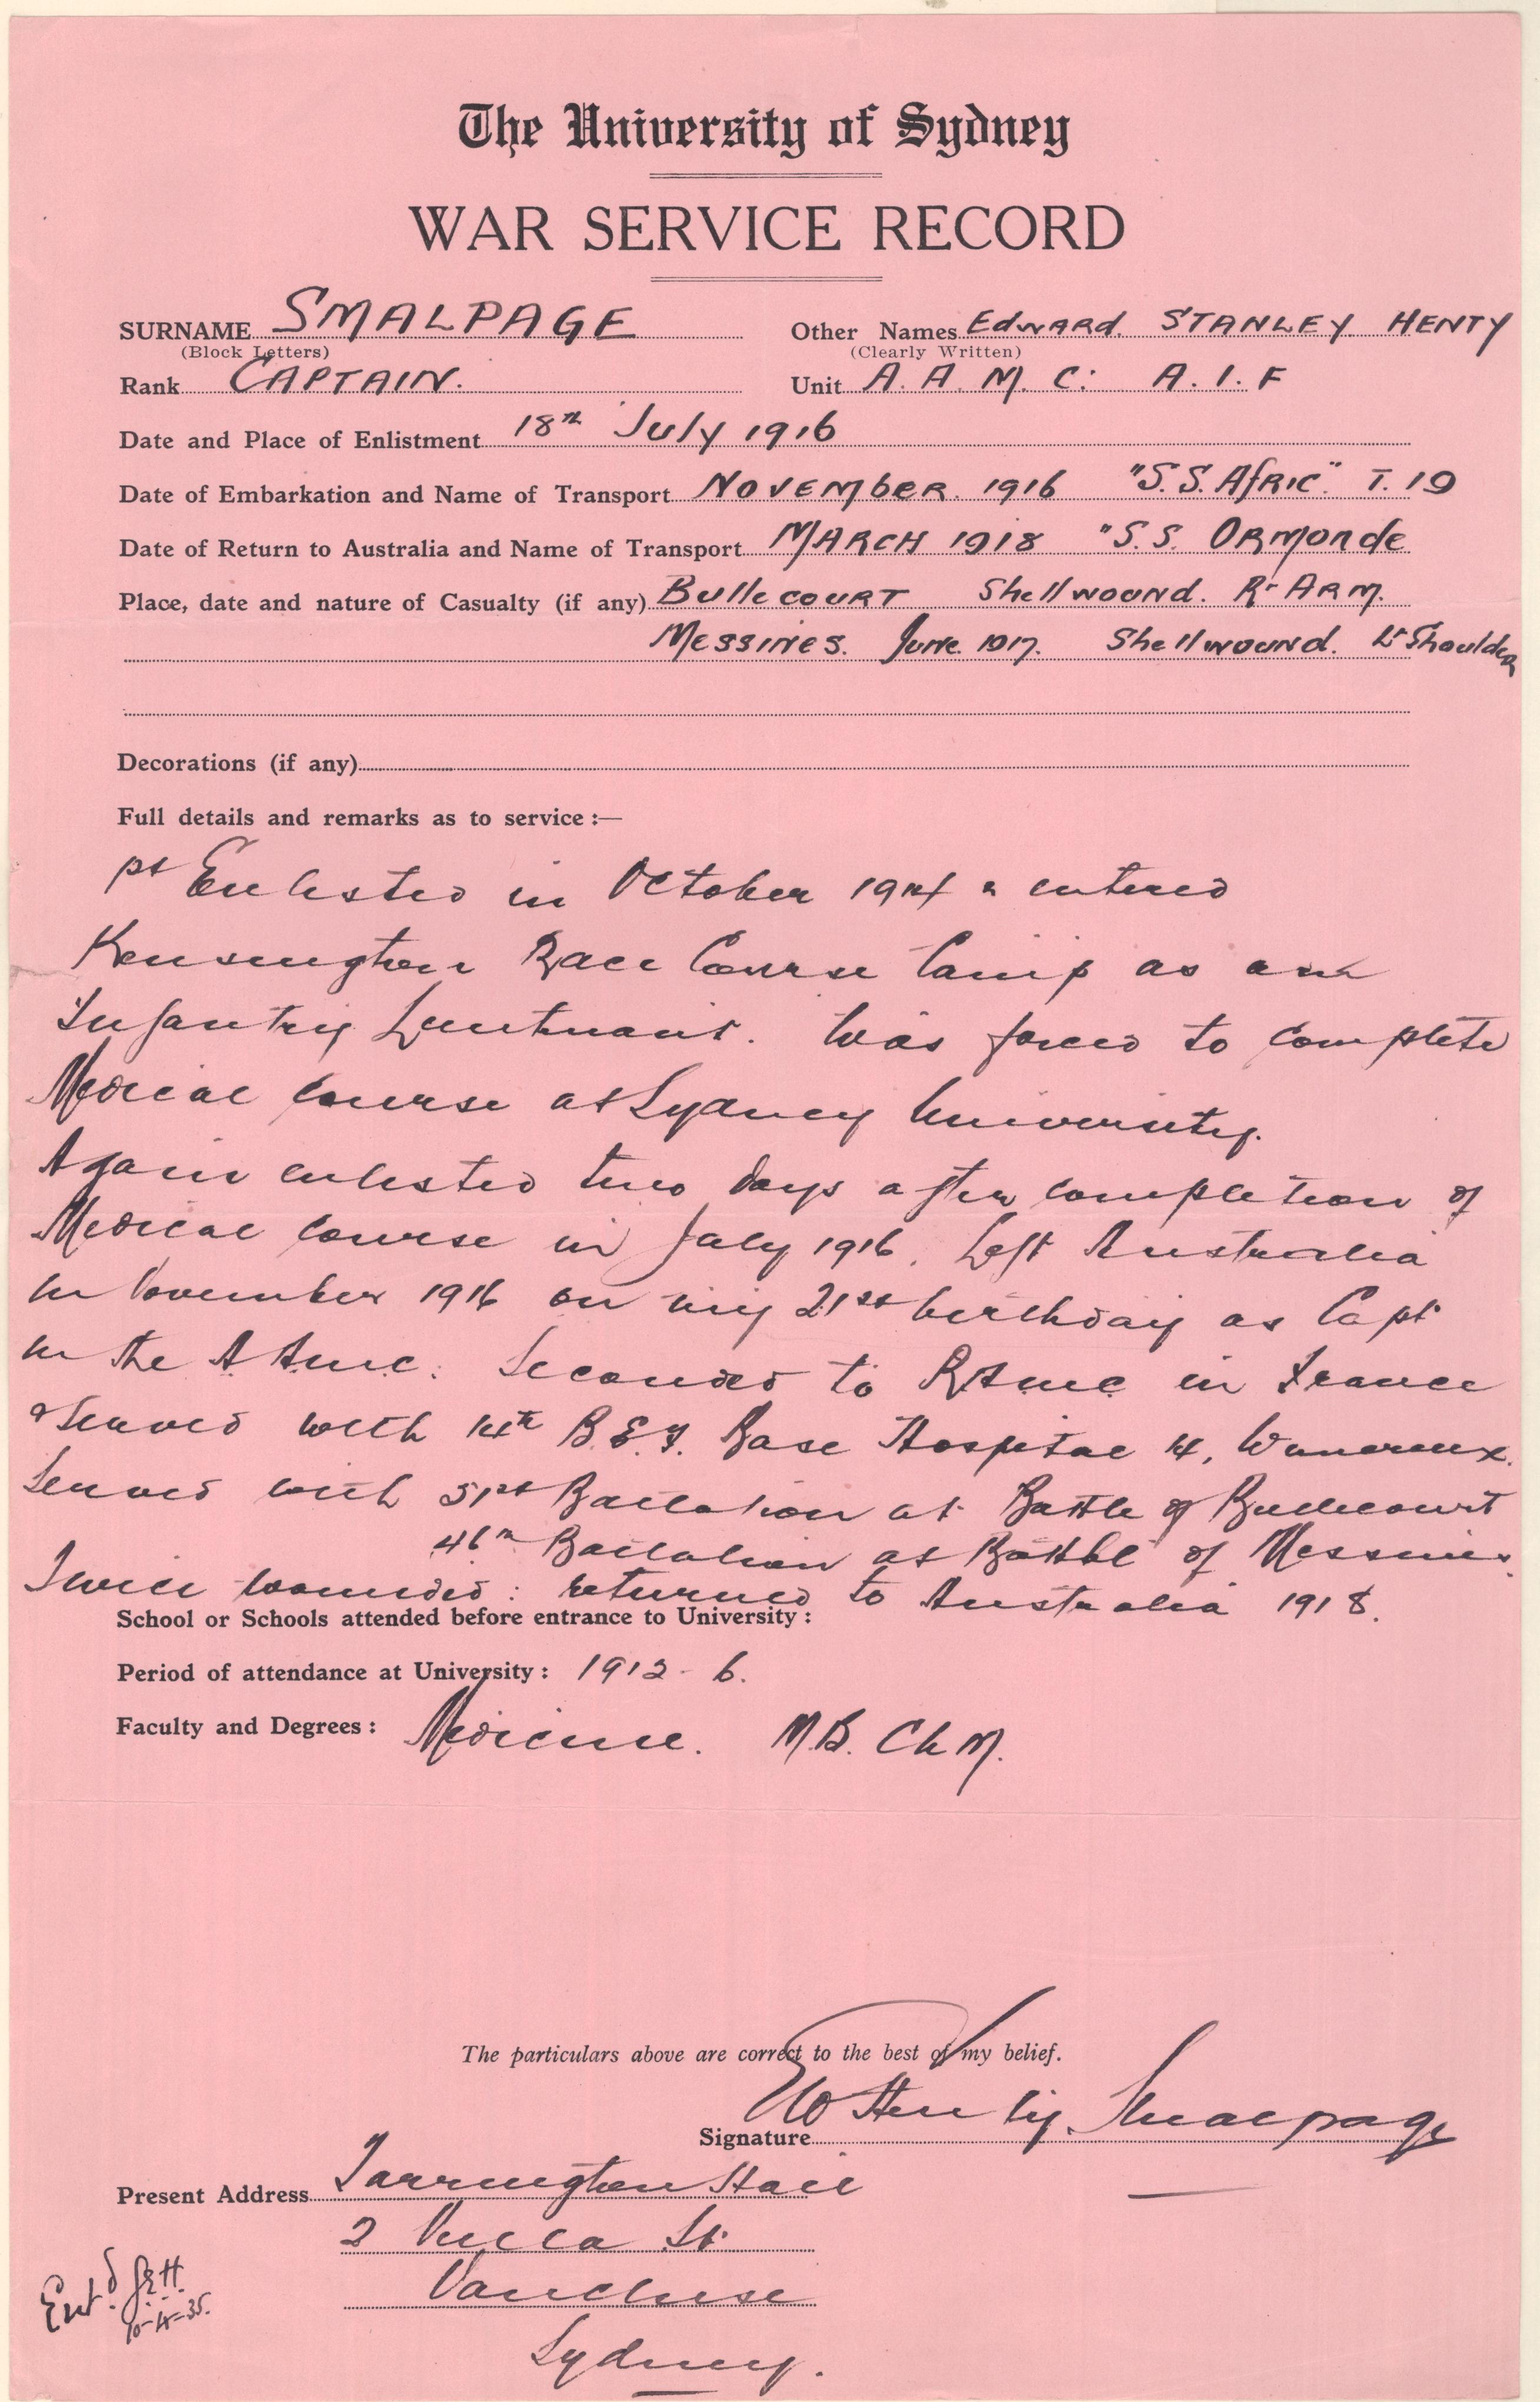 The University of Sydney
WAR SERVICE RECORD
SURNAME SMALPAGE Other Names Edward. STANLEY. HENTY
(Block Letters) (Clearly Written)
Rank CAPTAIN. Unit A. A. M. C: A. I. F
Date and Place of Enlistment 18th July 1916
Date of Embarkation and Name of Transport NOVEMBER. 1916 "S.S. Afric". T. 19
Date of Return to Australia and Name of Transport MARCH 1918 "S.S. ORMONDE
Place, date and nature of Casualty (if any) Bullecourt Shellwound. Rt ARM.
Messines. June. 1917. Shellwound. Lt Shoulder
Decorations (if any)
Full details and remarks as to service :—
Enlisted in October 1914 & entered
Kensington Race Course Camp as an
Infantry Lieutenant. Was forced to complete
Medical course at Sydney University.
Again enlisted two days after completion of
Medical course in July 1916. Left Australia
in November 1916 on my 21st birthday as Capt
in the A.A.M.C. Seconded to RAMC in France
& served with 14th B.E.F. Base Hospital, Wimereux.
Served with 51st Battalion at Battle of Bullecourt
46th Battalion at Battle of Messines.
Twice wounded: returned to Australia 1918.
School or Schools attended before entrance to University :
Period of attendance at University : 1912 - 6.
Faculty and Degrees : Medicine. M.B. Ch M.
The particulars above are correct to the best of my belief.
Signature Henty Smalpage
Present Address Tarrington Hall
2 St.
Vaucluse
Sydney.
Ent.d
10-4-35.